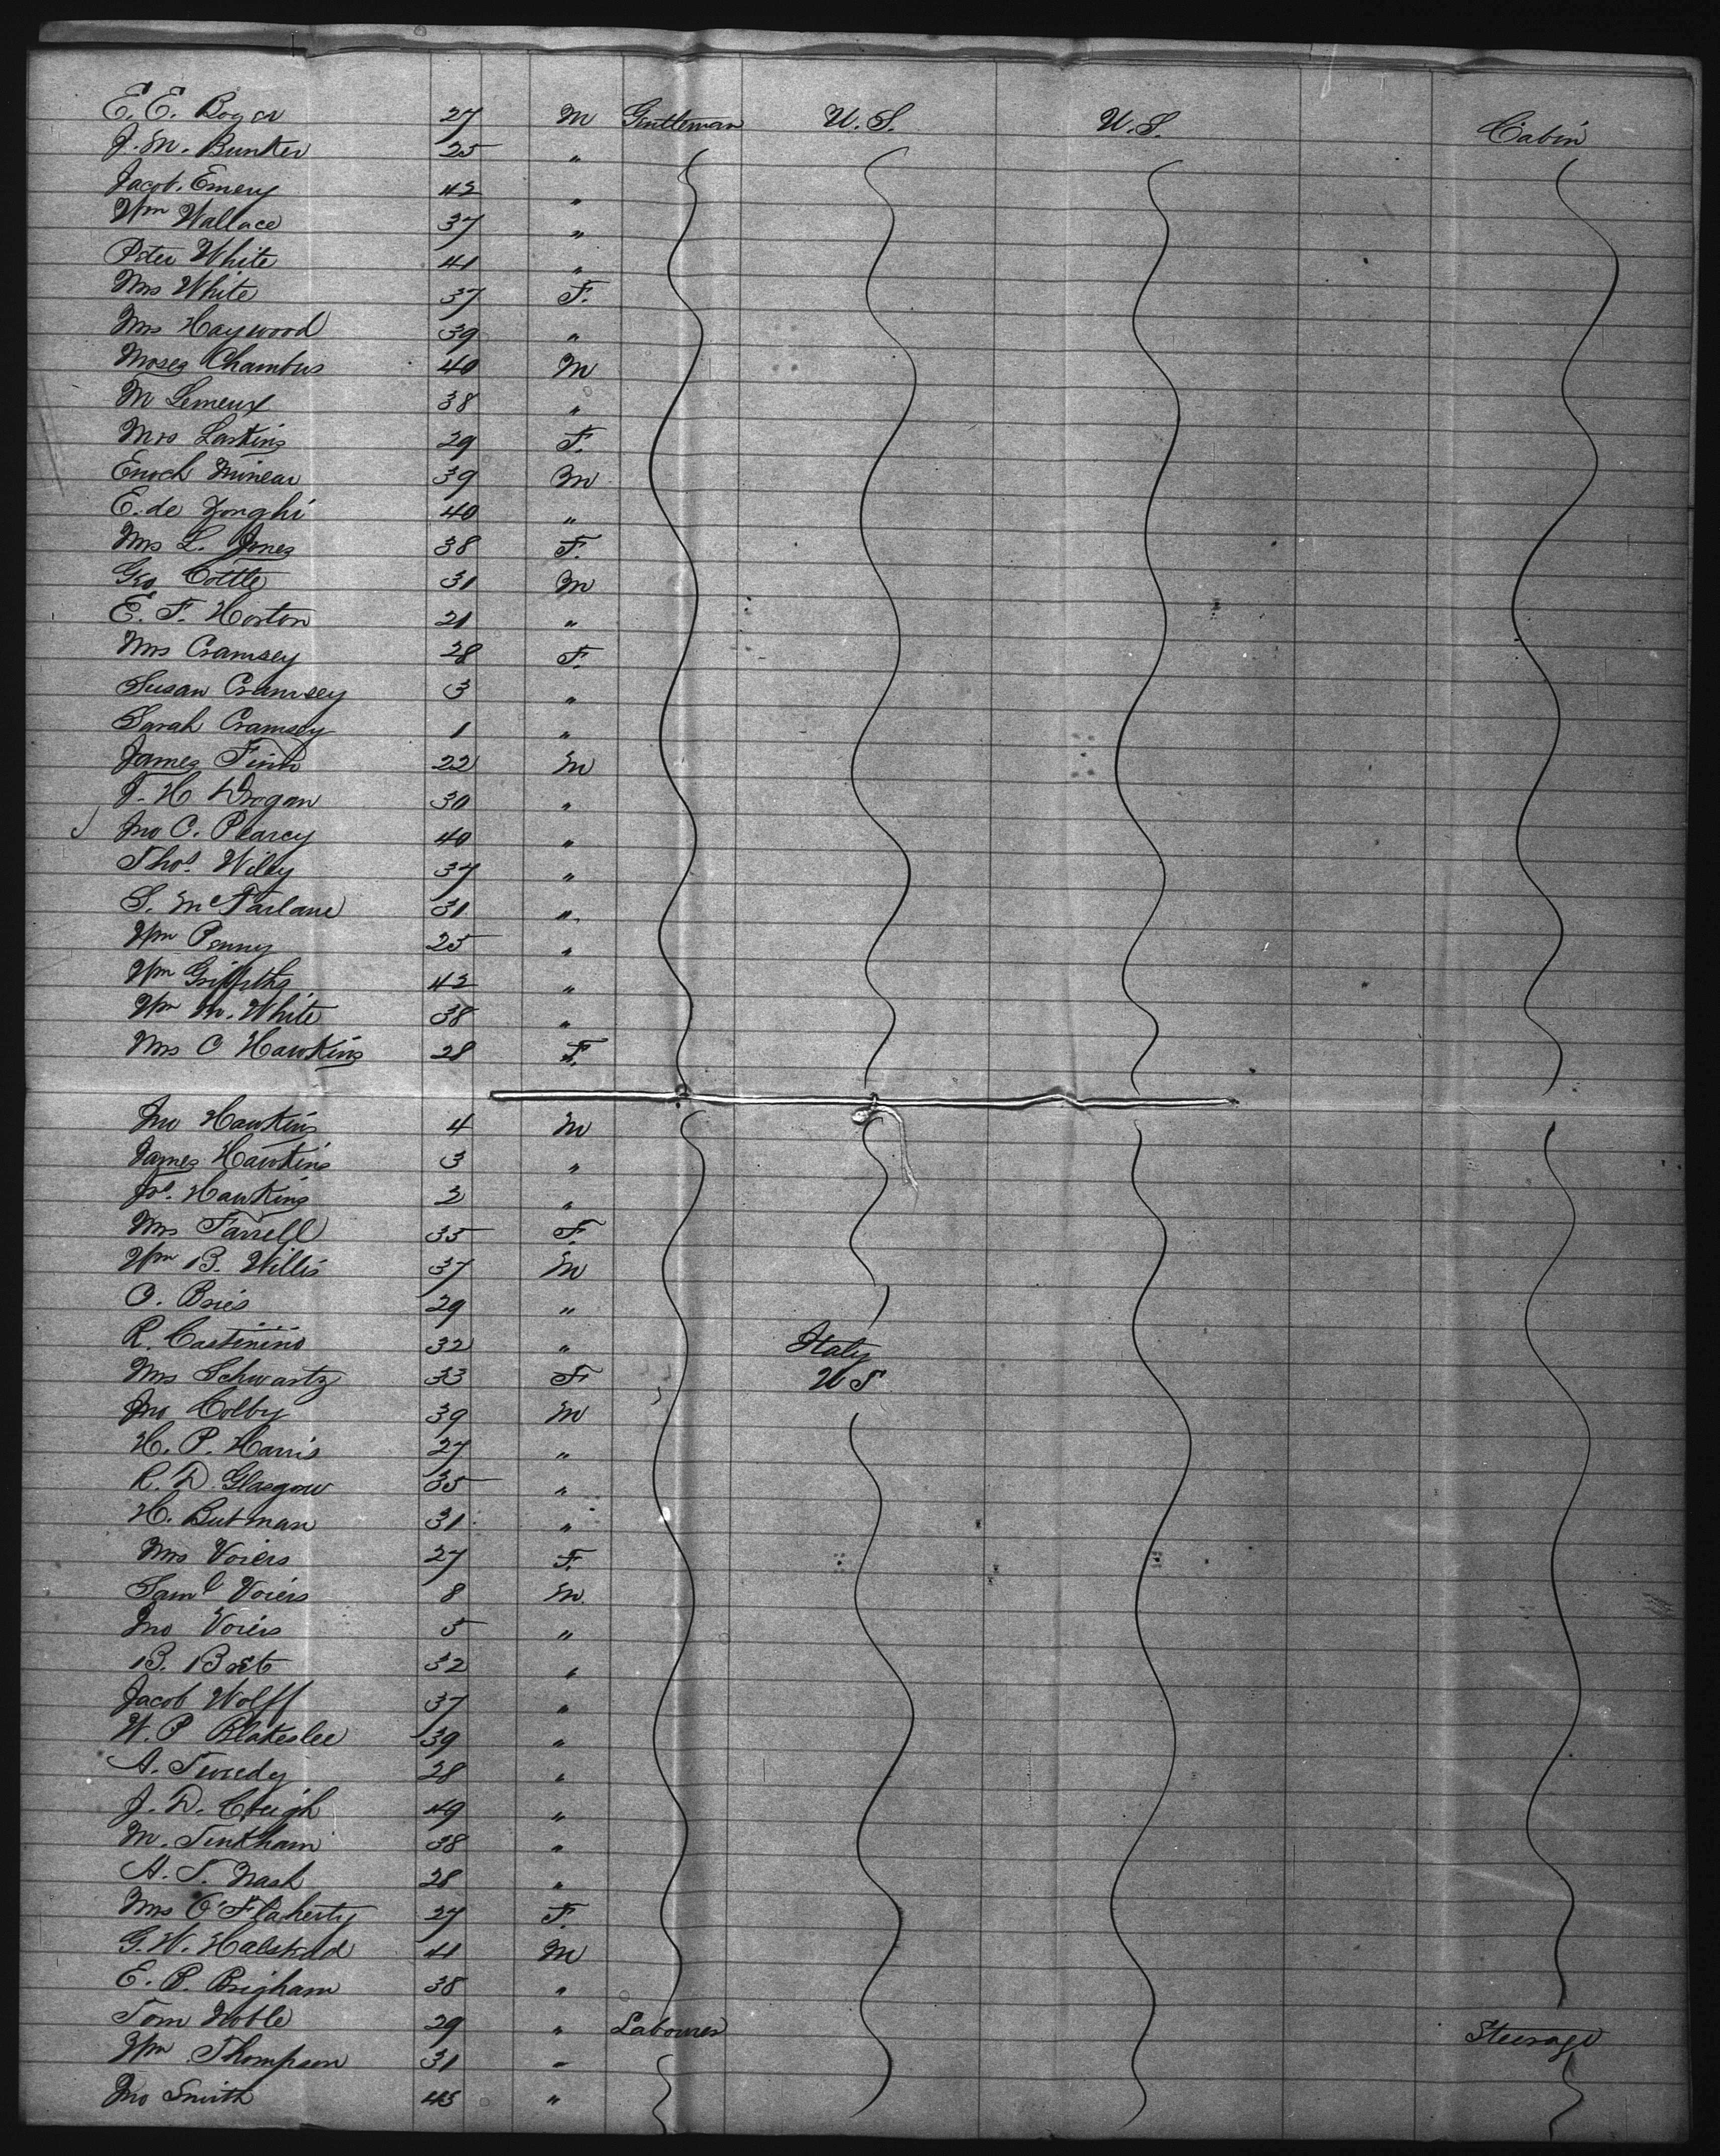 E. E. Boger 27 M Gentleman U.S. U.S. Cabin
J. M. Bunker 25 "
Jacob Emery 42 "
Wm Wallace 37 "
Peter White 41 "
Mrs White 37 F.
Mrs Haywood 39 "
Moses Chambers 40 M
M Lemeux 38 "
Mrs Larkins 29 F.
Enoch Minear 39 M
E. de Zonghi 40 "
Mrs L. Jones 38 F.
Geo Cottle 31 M
E. F. Horton 21 "
Mrs Cramsey 28 F.
Susan Cramsey 3 "
Sarah Cramsey 1 "
James Finn 22 M
J. H Drogan 30 "
Jno C. Pearcy 40 "
Thos. Wiley 37 "
S. McFarlane 31 "
Wm Penny 25 "
Wm Griffiths 42 "
Wm M. White 38 "
Mrs C Hawkins 28 F.
Jno Hawkins 4 M
James Hawkins 3 "
Js. Hawkins 2 "
Mrs Farrell 35 F.
Wm B. Willis 37 M
O. Bries 29 "
R. Castinino 32 " Italy
Mrs Schwartz 33 F U S
Jno Colby 39 M
H. P. Harris 27 "
R. D. Glasgow 35 "
H. Butman 31 "
Mrs Voiers 27 F.
Saml Voiers 8 M.
Jno Voiers 5 "
B. 32 "
Jacob Wolff 37 "
W. P Blakeslee 39 "
A. Tweedy 28 "
J. D. Creigh 49 "
M. Tinkham 38 "
A. T. Nash 28 "
Mrs O'Flaherty 27 F.
G. W. Halstead 41 M
E. P. Brigham 38 "
Tom Noble 29 " Labourer Steerage
Wm Thompson 31 "
Jno Smith 43 "